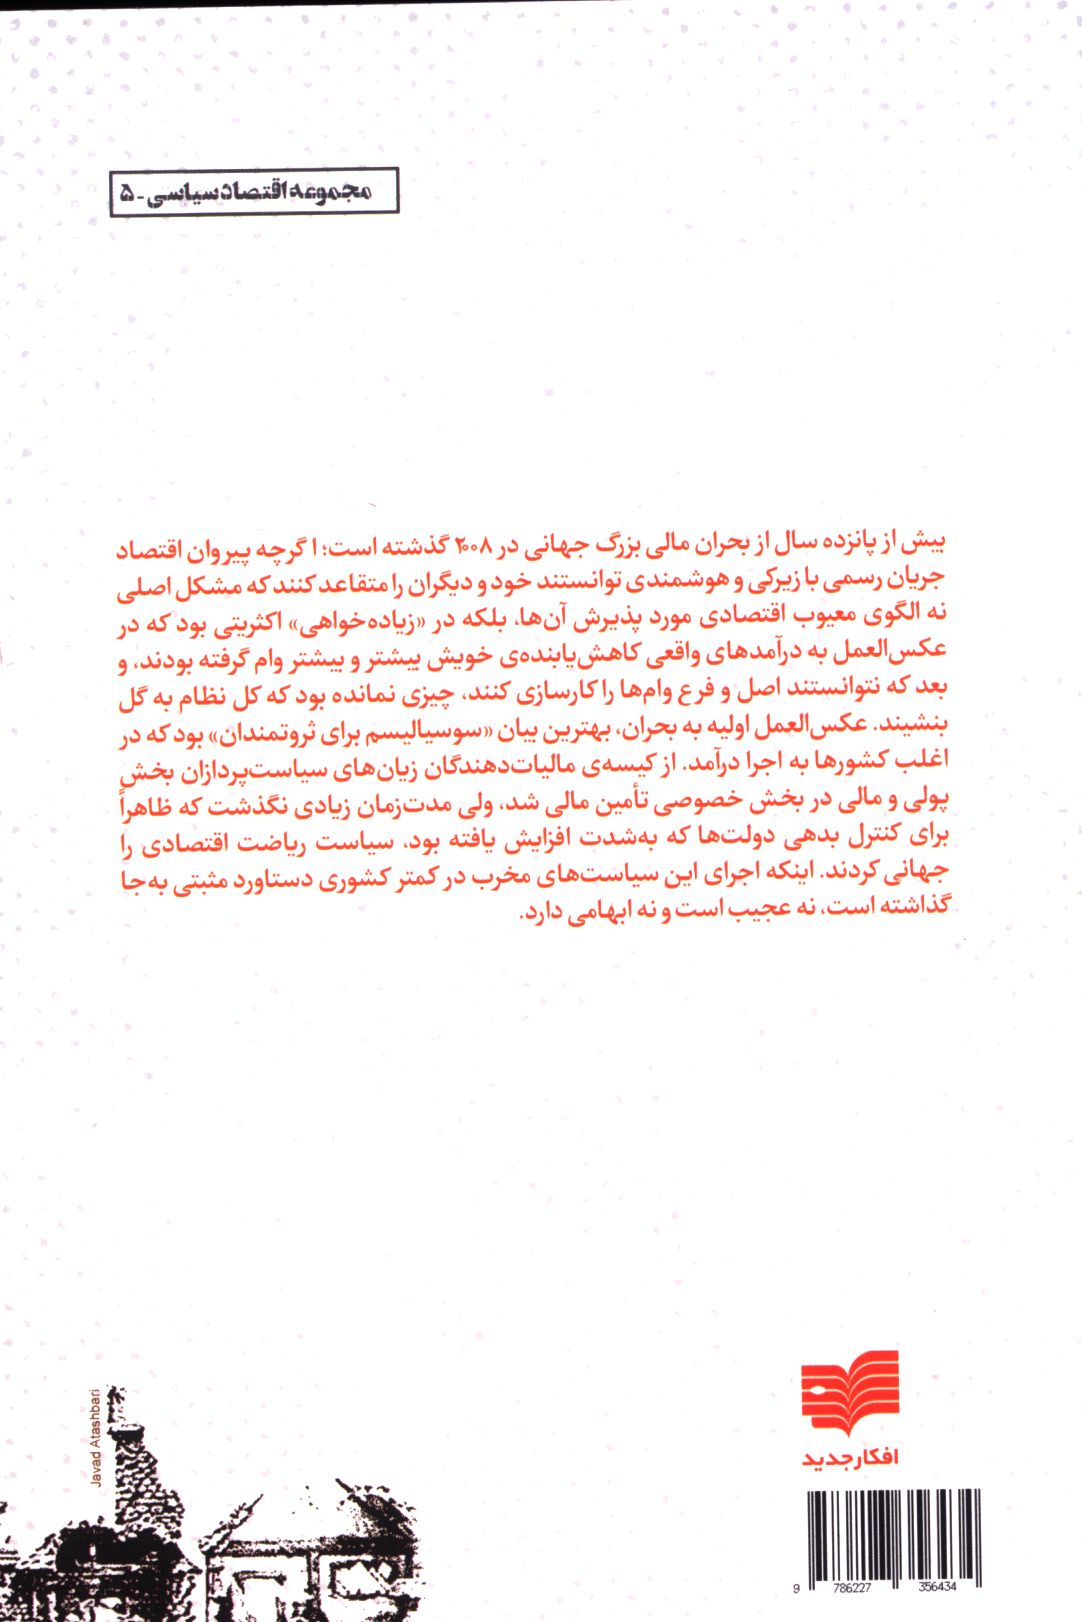 مجموعه اقتصاد سیاسی - ۵
بیش از پانزده سال از بحران مالی بزرگ جهانی در ۲۰۰۸ گذشته است؛ اگرچه پیروان اقتصاد
جریان رسمی با زیرکی و هوشمندی توانستند خود و دیگران را متقاعد کنند که مشکل اصلی
نه الگوی معیوب اقتصادی مورد پذیرش آن‌ها، بلکه در «زیاده‌خواهی» اکثریتی بود که در
عکس‌العمل به درآمدهای واقعی کاهش‌یابنده‌ی خویش بیشتر و بیشتر وام گرفته بودند، و
بعد که نتوانستند اصل و فرع وام‌ها را کارسازی کنند، چیزی نمانده بود که کل نظام به گل
بنشیند. عکس‌العمل اولیه به بحران، بهترین بیان «سوسیالیسم برای ثروتمندان» بود که در
اغلب کشورها به اجرا درآمد. از کیسه‌ی مالیات‌دهندگان زیان‌های سیاست‌پردازان بخش
پولی و مالی در بخش خصوصی تأمین مالی شد، ولی مدت‌زمان زیادی نگذشت که ظاهراً
برای کنترل بدهی دولت‌ها که به‌شدت افزایش یافته بود، سیاست ریاضت اقتصادی را
جهانی کردند. اینکه اجرای این سیاست‌های مخرب در کمتر کشوری دستاورد مثبتی به‌جا
گذاشته است، نه عجیب است و نه ابهامی دارد.
Javad Atashbari
افکار جدید
9 786227 356434